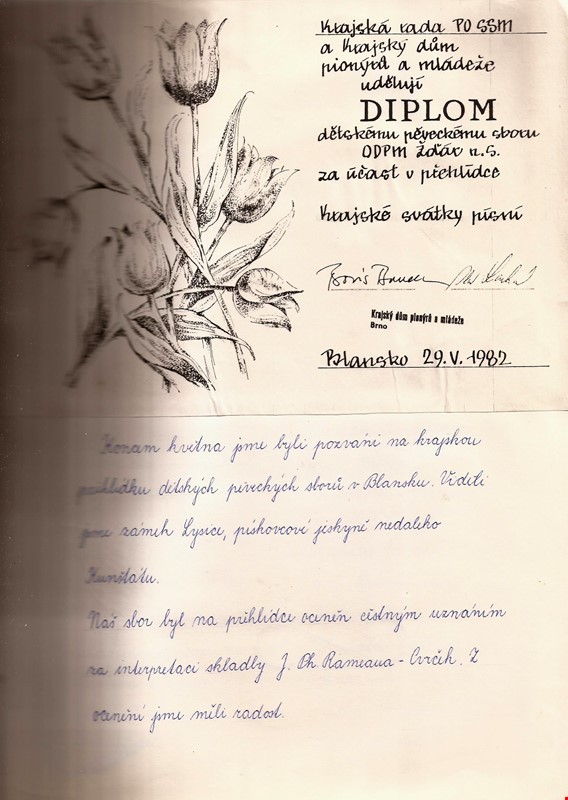 Krajská rada PO SSM
a Krajský dům
pionýrů a mládeže
udělují
DIPLOM
dětskému pěveckému sboru
ODPM Žďár n.S.
za účast v přehlídce
Krajské svátky písní
Boris
Krajský dům pionýrů a mládeže
Brno
Blansko 29.V.1982
Koncem května jsme byli pozváni na krajskou
přehlídku dětských pěveckých sborů v Blansku. Viděli
jsme zámek Lysice, pískovcové jeskyně nedaleko
Kunštátu.
Náš sbor byl na přehlídce oceněn čestným uznáním
za interpretaci skladby J. Ph. Rameaua - Cvrček. Z
ocenění jsme měli radost.